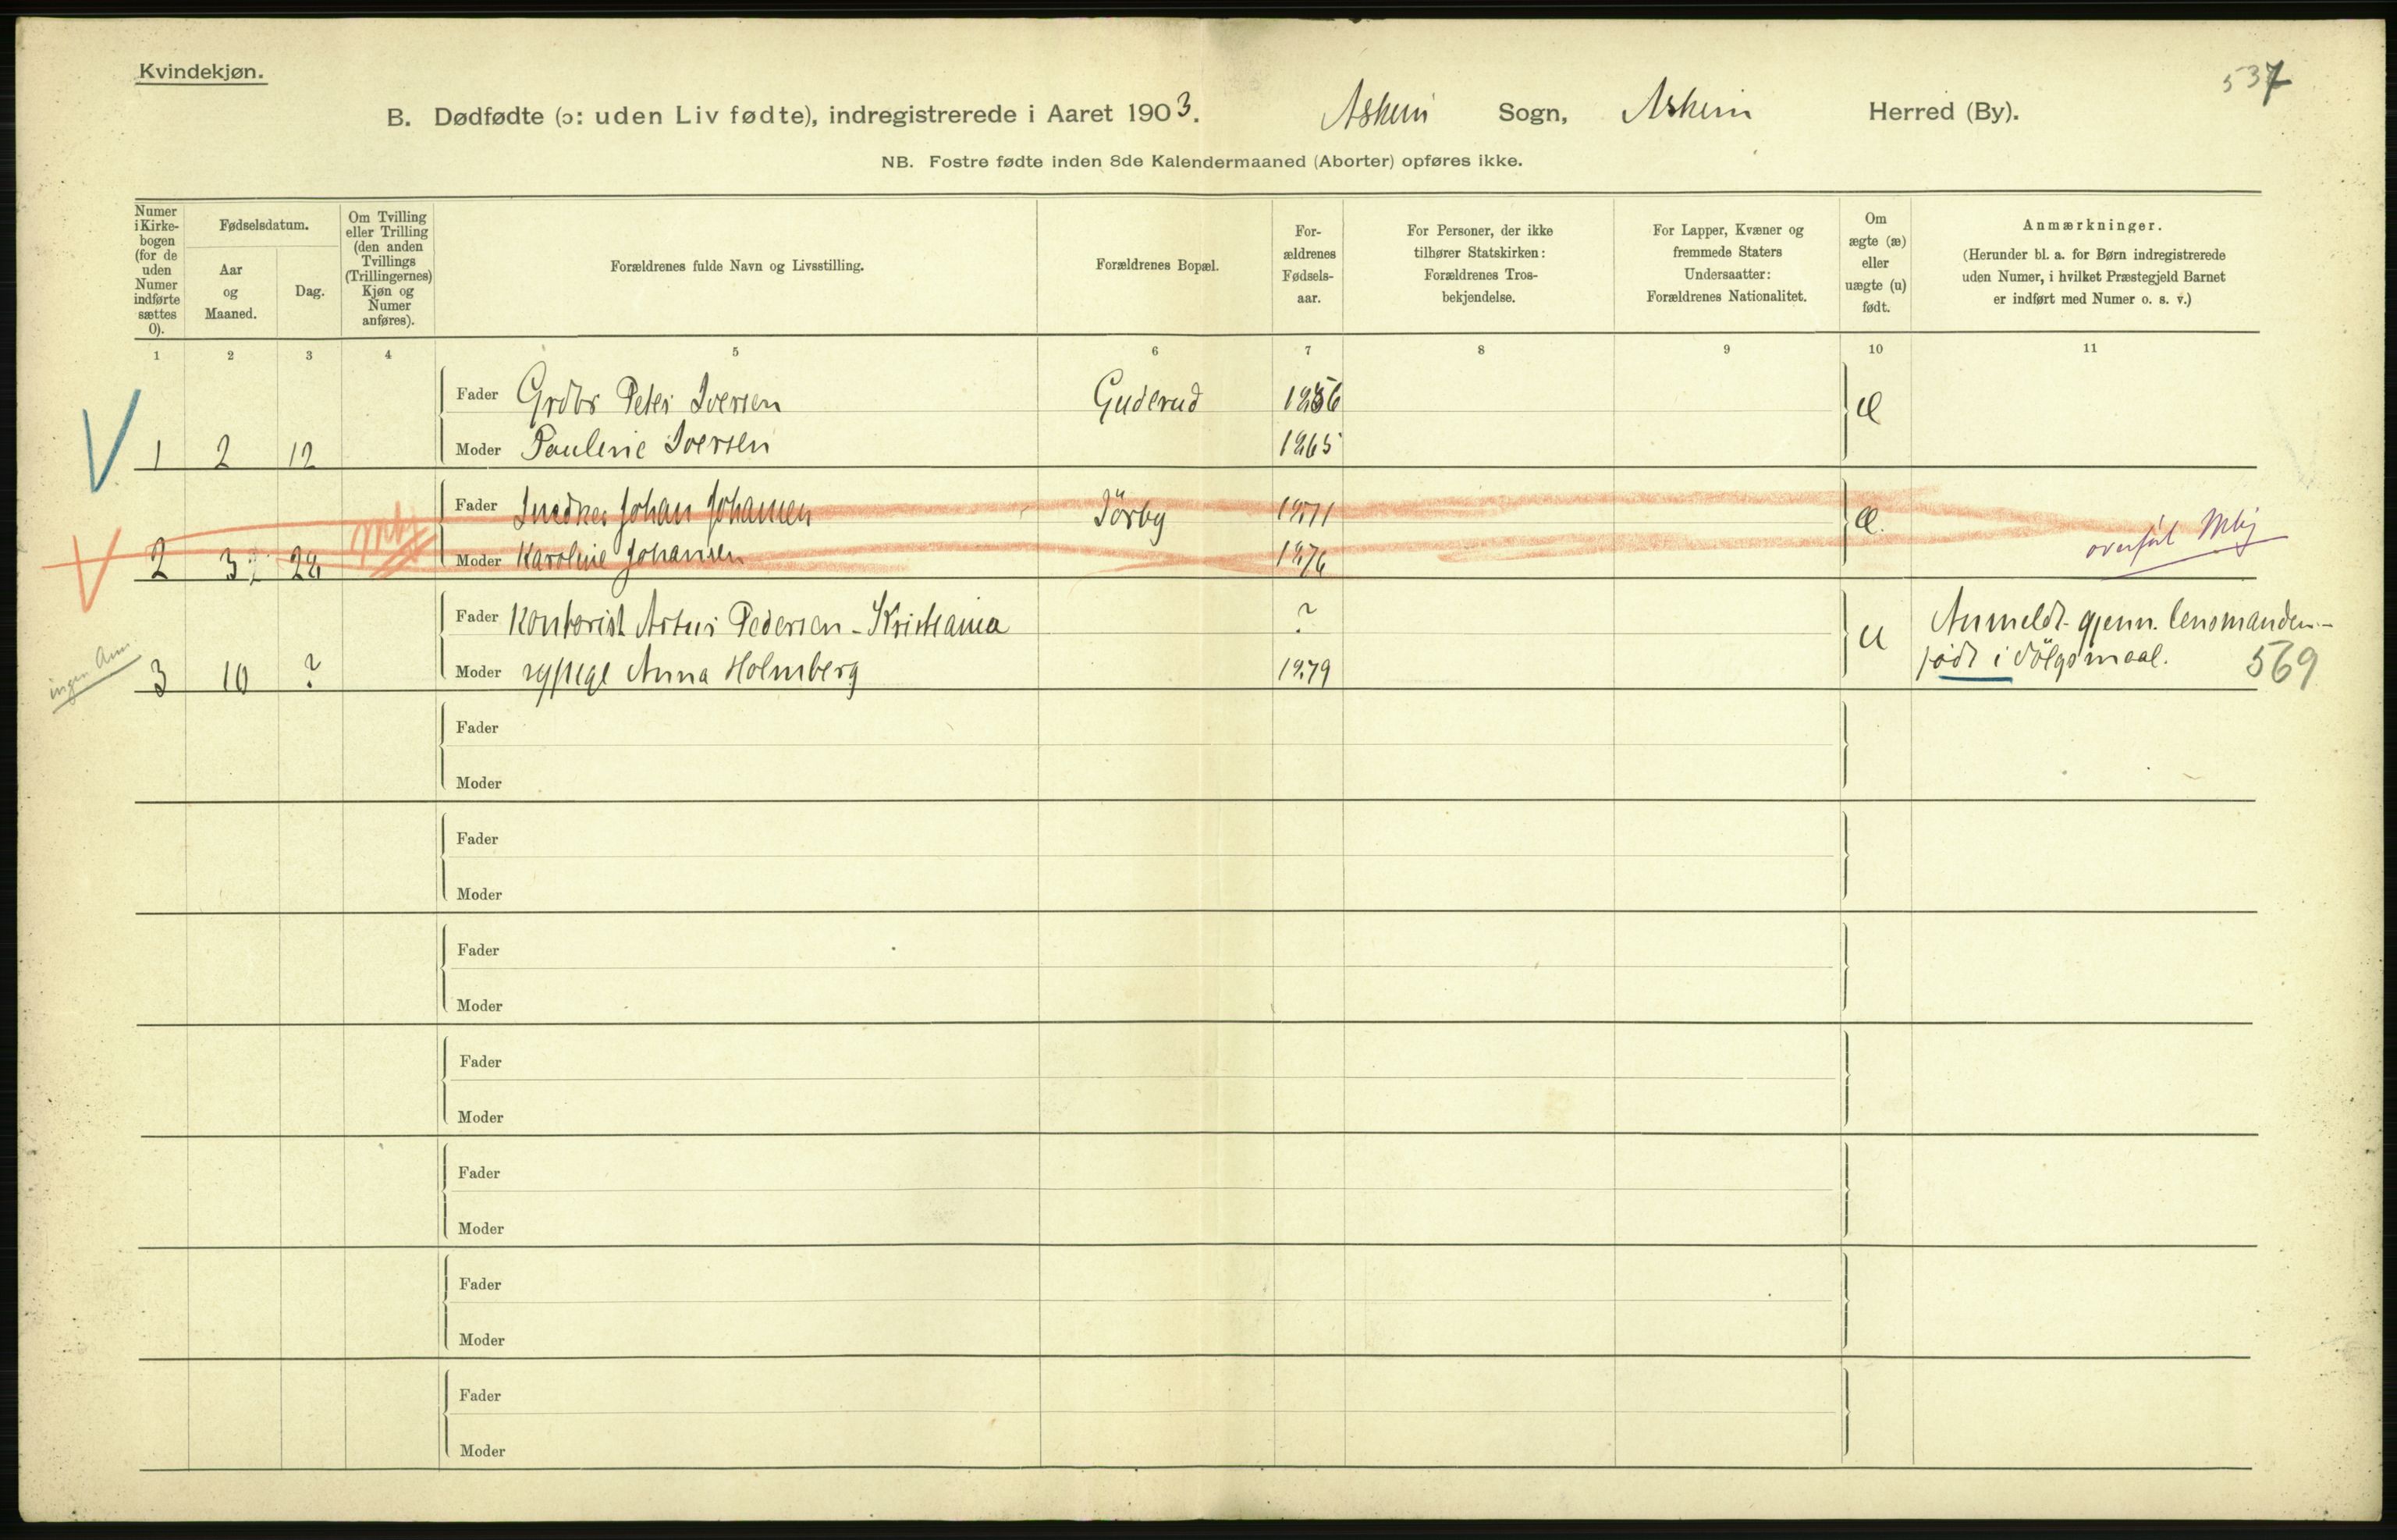 Kvindekjøn.
537
B. Dødfødte (ɔ: uden Liv fødte), indregistrerede i Aaret 1903. Askim Sogn, Askim Herred (By).
NB. Fostre fødte inden 8de Kalendermaaned (Aborter) opføres ikke.
Numer i Kirke-bogen (for de uden Numer indførte sættes 0).
Fødselsdatum.
Aar og Maaned.
Dag.
Om Tvilling eller Trilling (den anden Tvillings (Trillingernes) Kjøn og Numer anføres).
Forældrenes fulde Navn og Livsstilling.
Forældrenes Bopæl.
For-ældrenes Fødsels-aar.
For Personer, der ikke tilhører Statskirken: Forældrenes Tros-bekjendelse.
For Lapper, Kvæner og fremmede Staters Undersaatter: Forældrenes Nationalitet.
Om ægte (æ) eller uægte (u) født.
Anmærkninger.
(Herunder bl. a. for Børn indregistrerede uden Numer, i hvilket Præstegjeld Barnet er indført med Numer o. s. v.)
1 2 3 4 5 6 7 8 9 10 11
Fader Grdbr Peter Iversen Guderud 1856 æ
1 2 12 Moder Pauline Iversen 1865
Fader Snedker Johan Johansen Sörby 1871 æ.
2 3 24 Moder Karoline Johansen 1876 overført Mkj
Fader Kontorist Artur Pedersen - Kristiania ? u Anmeldt gjenn. lensmanden -
ingen Anm 3 10 ? Moder sypige Anna Holmberg 1879 født i dölgsmaal. 569
Fader
Moder
Fader
Moder
Fader
Moder
Fader
Moder
Fader
Moder
Fader
Moder
Fader
Moder